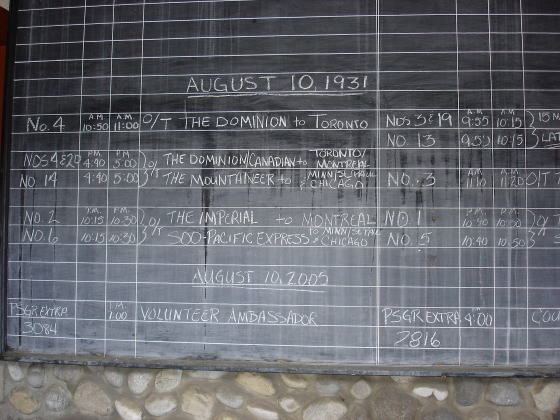 AUGUST 10, 1931
No. 4 A.M. 10:50 A.M. 11:00 O/T THE DOMINION to TORONTO NOS 3 & 19 A.M. 9:55 A.M. 10:15 15 M
NO. 13 9:55 10:15 LAT
NOS 4 & 20 P.M. 4:40 P.M. 5:00 O/T THE DOMINION/CANADIAN to TORONTO/MONTREAL
NO. 14 4:40 5:00 THE MOUNTAINEER to MINN/ST. PAUL & CHICAGO NO. 3 A.M. 11:10 A.M. 11:20 O/T T
NO. 2 P.M. 10:15 P.M. 10:30 O/T THE IMPERIAL to MONTREAL NO. 1
NO. 6 10:15 10:30 SOO-PACIFIC EXPRESS to MINN/ST. PAUL & CHICAGO NO. 5 10:40 10:50
AUGUST 10, 2005
PSGR EXTRA 3084 VOLUNTEER AMBASSADOR PSGR EXTRA 2816 4:00 COU